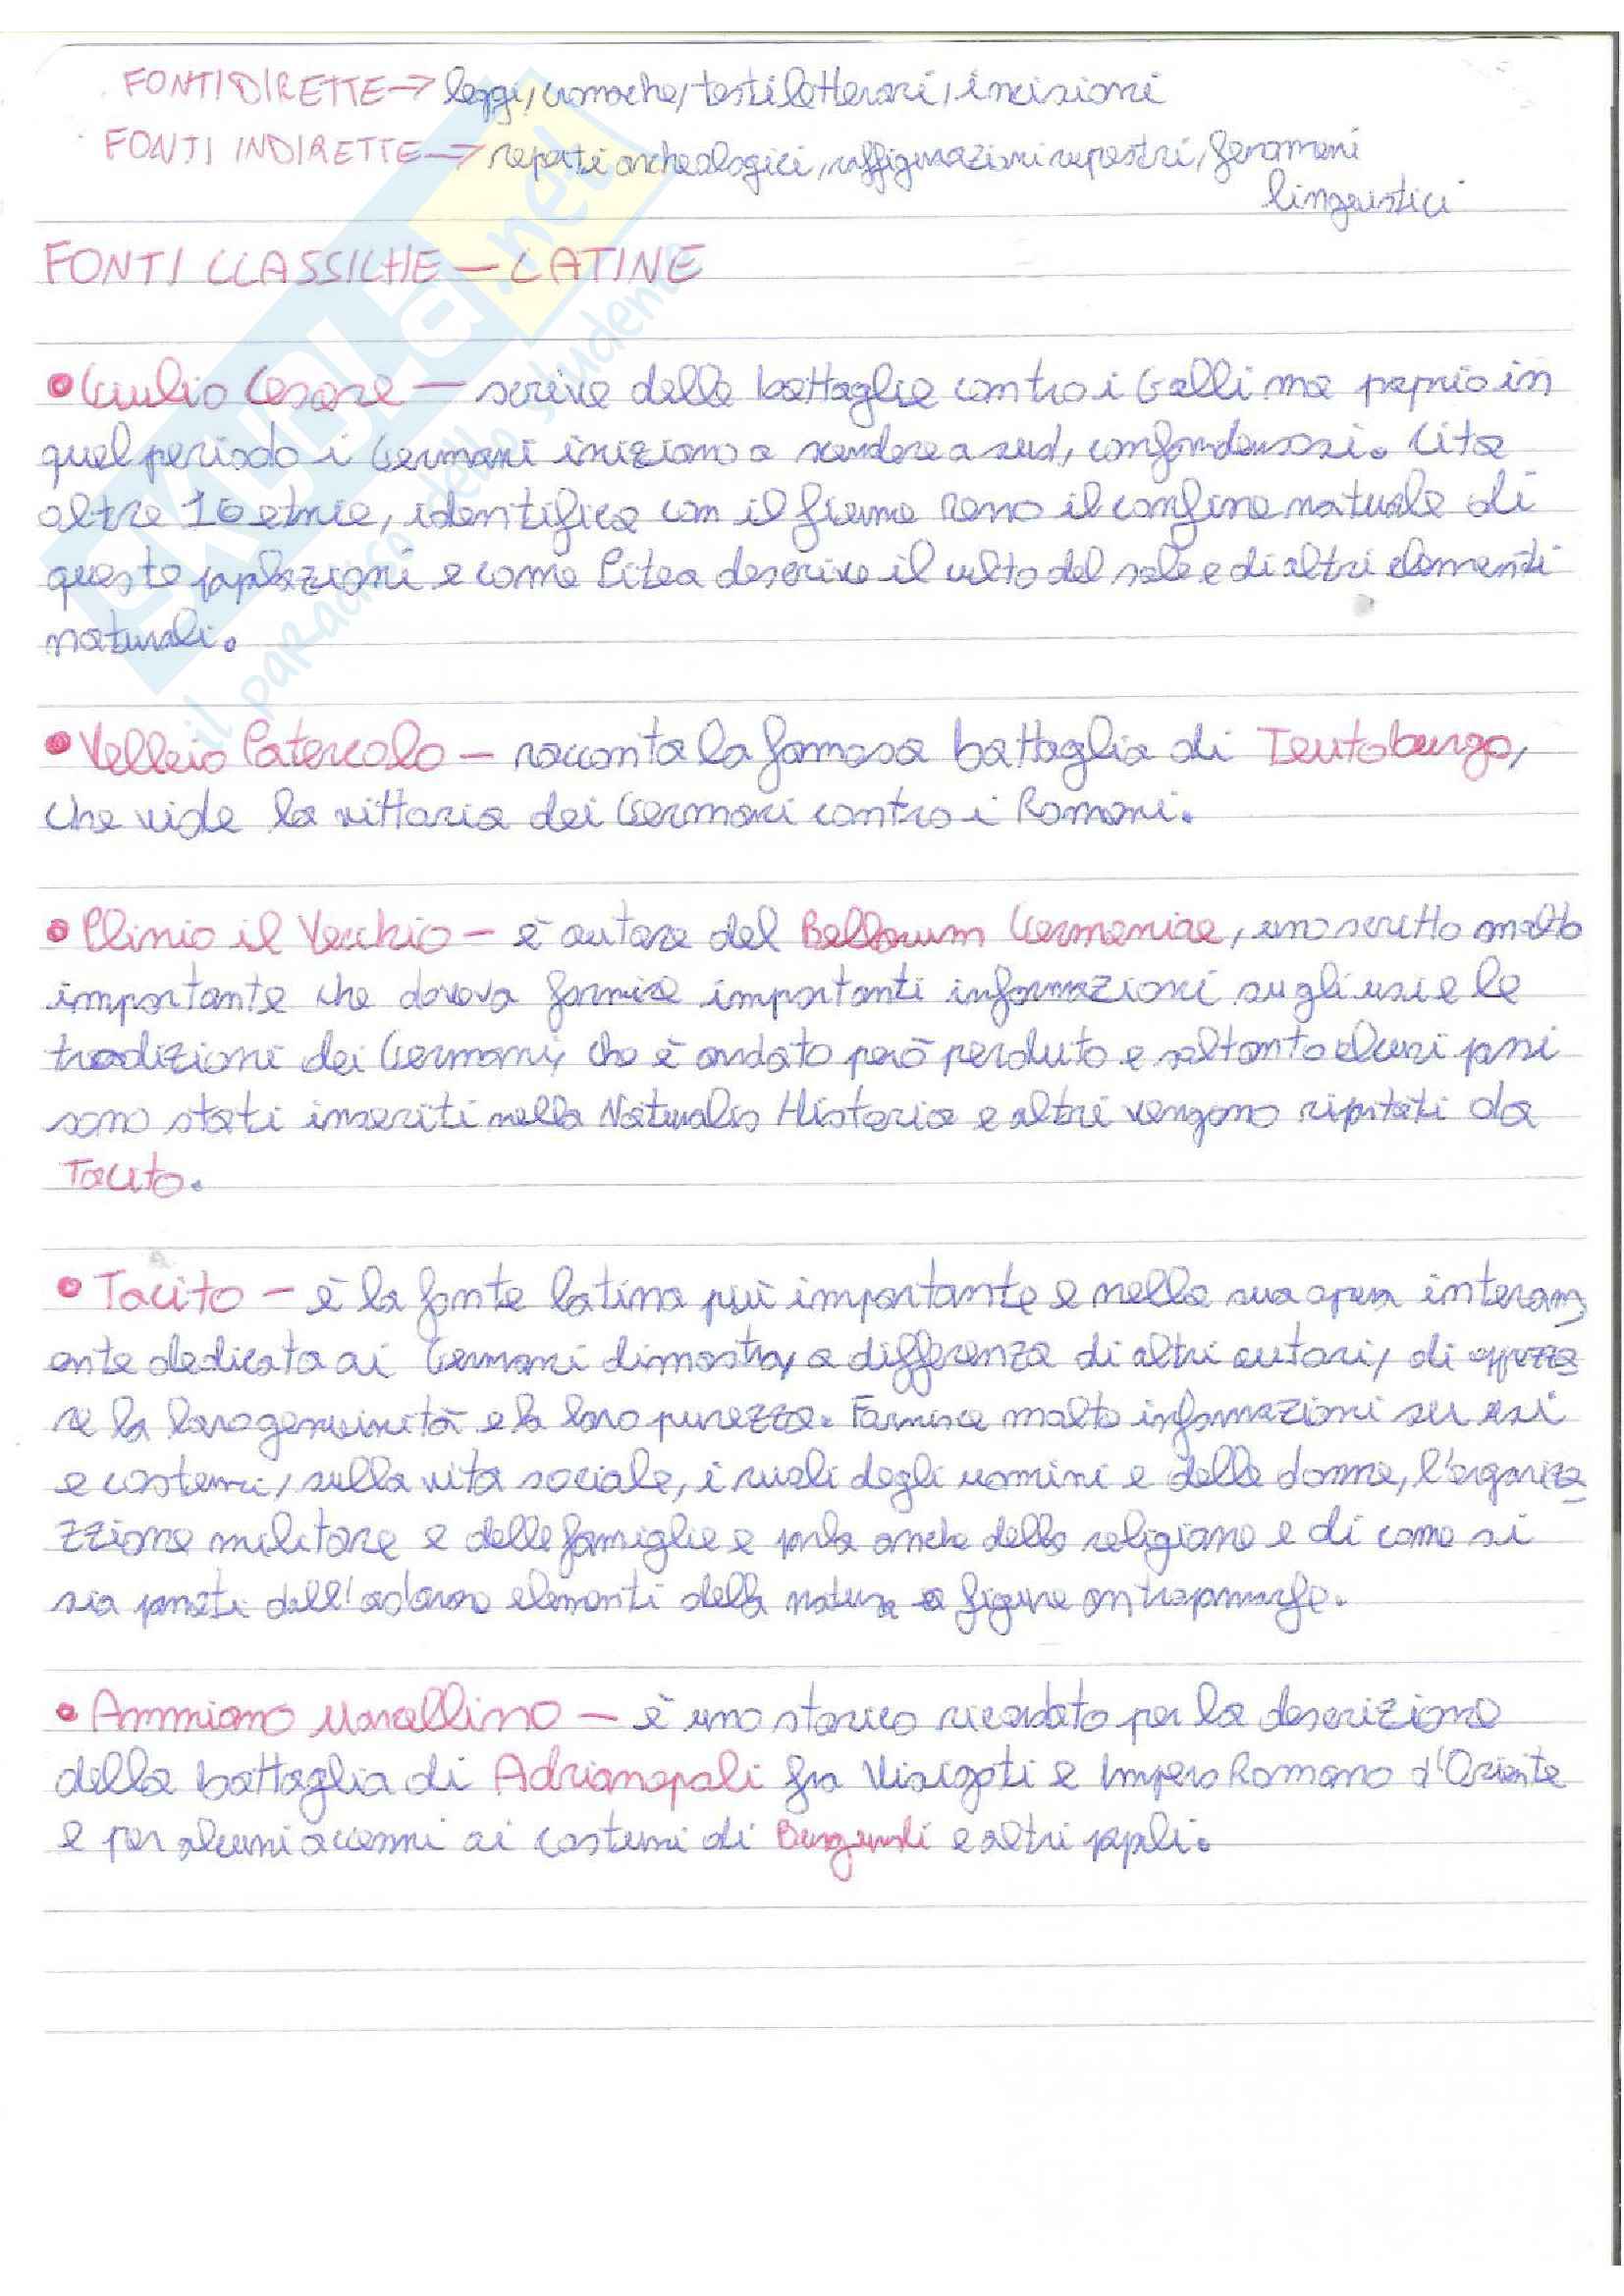 FONTI DIRETTE → leggi, cronache, testi letterari, incisioni
FONTI INDIRETTE → reperti archeologici, raffigurazioni rupestri, fenomeni
linguistici
FONTI CLASSICHE – LATINE
• Giulio Cesare – scrive delle battaglie contro i Galli ma proprio in
quel periodo i Germani iniziano a scendere a sud, confondendosi. Cita
altre 16 etnie, identifica con il fiume Reno il confine naturale di
queste popolazioni e come Pitea descrive il culto del sole e di altri elementi
naturali.
• Velleio Patercolo – racconta la famosa battaglia di Teutoburgo,
che vide la vittoria dei Germani contro i Romani.
• Plinio il Vecchio – è autore del Bellorum Germaniae, uno scritto molto
importante che doveva fornire importanti informazioni sugli usi e le
tradizioni dei Germani, che è andato però perduto e soltanto alcuni passi
sono stati inseriti nella Naturalis Historia e altri vengono riportati da
Tacito.
• Tacito – è la fonte latina più importante e nella sua opera interam
ente dedicata ai Germani dimostra, a differenza di altri autori, di apprezza
re la loro genuinità e la loro purezza. Fornisce molte informazioni su usi
e costumi, sulla vita sociale, i ruoli degli uomini e delle donne, l'organizza
zzione militare e delle famiglie e parla anche della religione e di come si
sia passati dall'adorare elementi della natura a figure antropomorfe.
• Ammiano Marcellino – è uno storico ricordato per la descrizione
della battaglia di Adrianopoli fra Visigoti e Impero Romano d'Oriente
e per alcuni accenni ai costumi di Burgundi e altri popoli.
SKUOLA.net
il paradiso dello studente